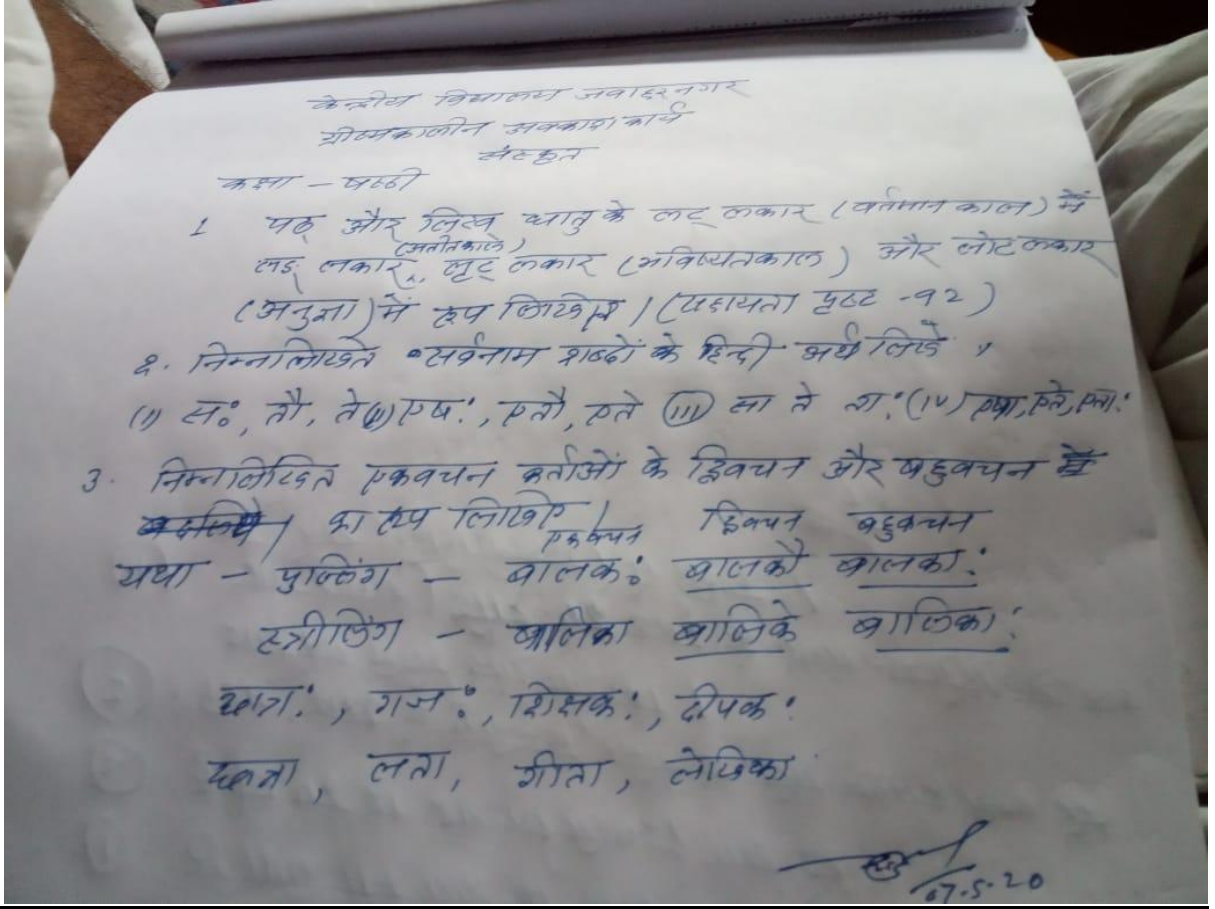 केन्द्रीय विद्यालय जवाहरनगर
ग्रीष्मकालीन अवकाश कार्य
संस्कृत
कक्षा - षष्ठी
1 पठ् और लिख धातु के लट् लकार (वर्तमान काल) में
(अतीतकाल)
लङ् लकार, लृट् लकार (भविष्यतकाल) और लोट लकार
(अनुज्ञा) में रूप लिखिए। (सहायता पृष्ट -92)
2. निम्नलिखित सर्वनाम शब्दों के हिन्दी अर्थ लिखें।
(i) सः, तौ, ते (ii) एषः, एतौ, एते (iii) सा ते ताः (iv) एषा, एते, एताः
3. निम्नलिखित एकवचन कर्ताओं के द्विवचन और बहुवचन
का रूप लिखिए।
एकवचन द्विवचन बहुवचन
यथा - पुल्लिंग - बालकः बालकौ बालकाः
स्त्रीलिंग - बालिका बालिके बालिकाः
छात्रः, गजः, शिक्षकः, दीपकः
छात्रा, लता, गीता, लेखिका
07.5.20